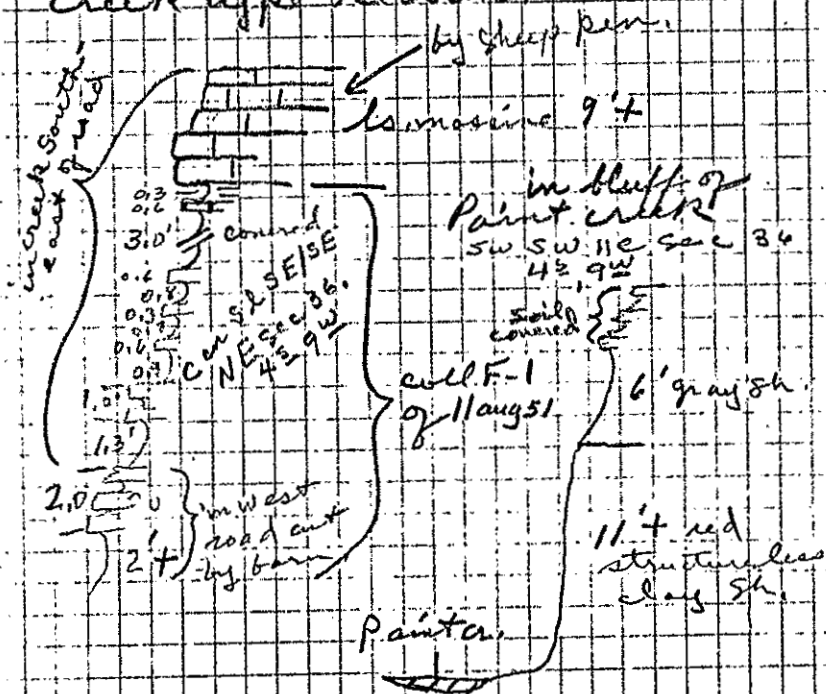 creek type
by sheep pen.
ls. massive 9'+
in creek south-
east of road
0.3
0.6
3.0'
covered
0.6
0.8
0.3
0.6
0.7
1.0'
1.3'
2.0
2'+
cen SL SE/SE
NE sec 36,
4S 9W
in west
road cut
by barn
coll. F-1
of 11 Aug 51
in bluff of
Paint creek
SW SW sec 36
4S, 9W
soil
covered
6' gray sh.
11'+ red
structureless
clay sh.
Paint cr.